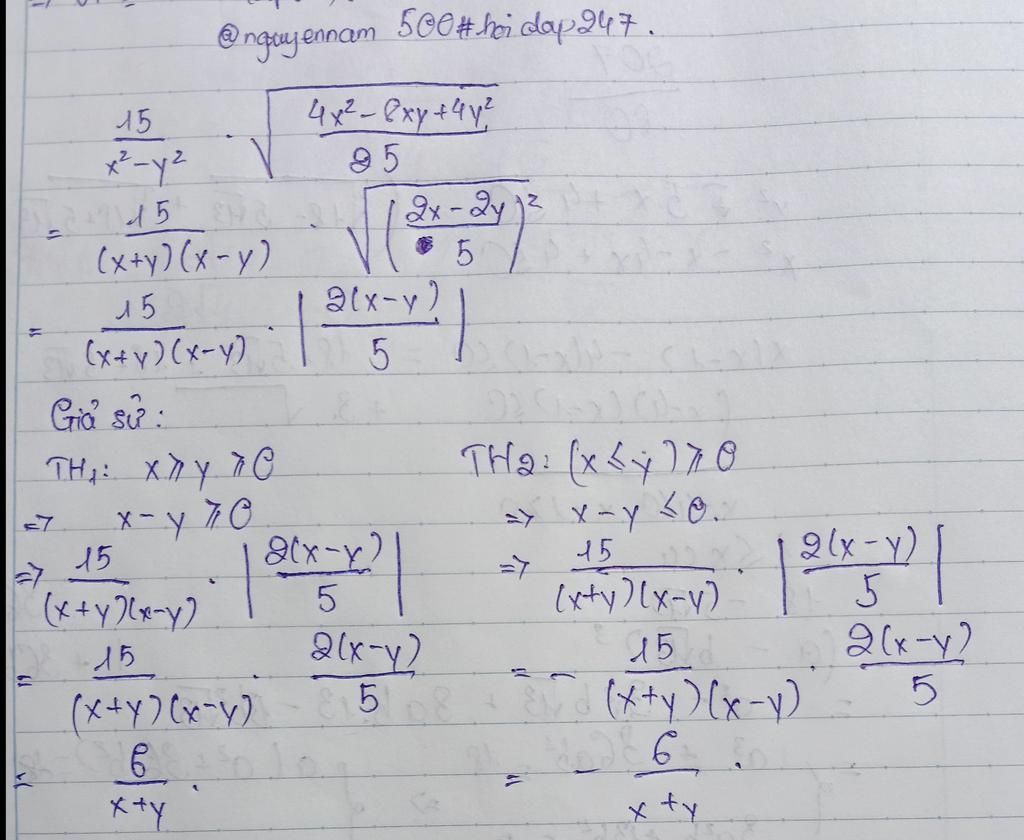 @nguyennam 500#hoidap247.
15/(x²-y²) · √((4x²-8xy+4y²)/25)
= 15/((x+y)(x-y)) · √(((2x-2y)/5)²)
= 15/((x+y)(x-y)) · |2(x-y)/5|
Giả sử:
TH1: x ⩾ y ⩾ 0
=> x-y ⩾ 0
=> 15/((x+y)(x-y)) · |2(x-y)/5|
= 15/((x+y)(x-y)) · 2(x-y)/5
= 6/(x+y).
TH2: (x ≤ y) ⩾ 0
=> x-y ≤ 0.
=> 15/((x+y)(x-y)) · |2(x-y)/5|
= - 15/((x+y)(x-y)) · 2(x-y)/5
= - 6/(x+y).